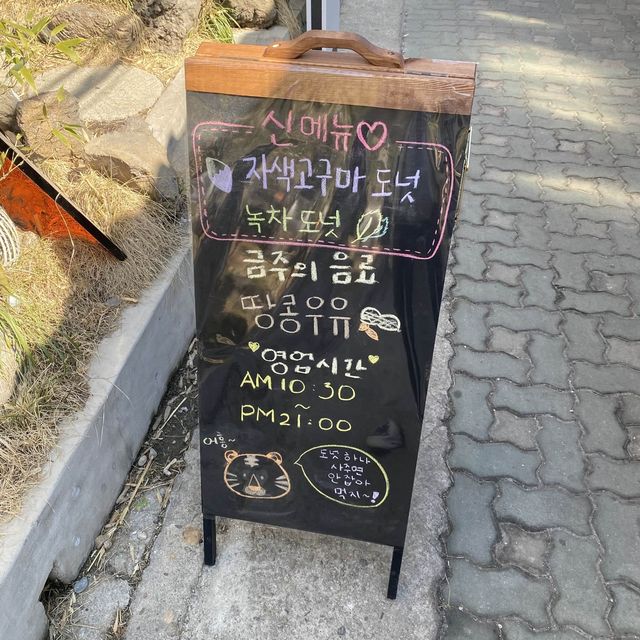 신메뉴♡
자색고구마 도넛
녹차 도넛
금주의 음료
땅콩우유
영업시간
AM 10:30
~
PM 21:00
어흥~
도넛 하나
사주면
안잡아
먹지~!